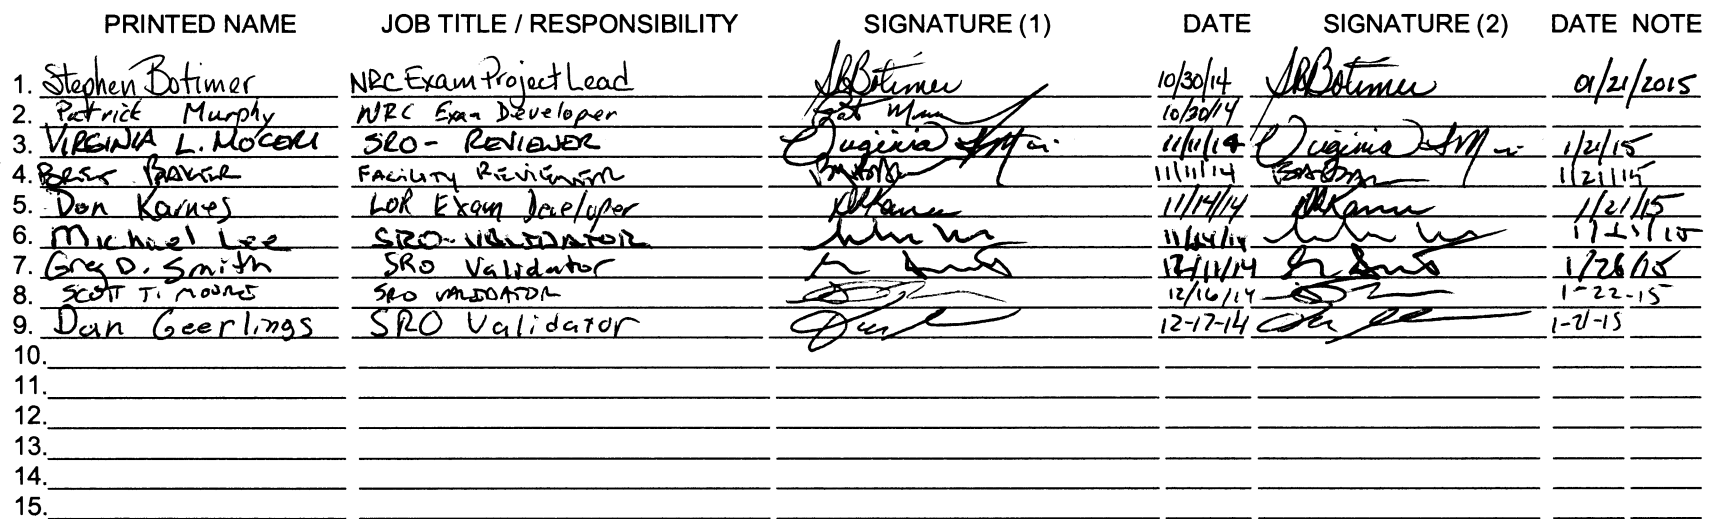 PRINTED NAME JOB TITLE / RESPONSIBILITY SIGNATURE (1) DATE SIGNATURE (2) DATE NOTE
1. Stephen Botimer NRC Exam Project Lead SRBotimer 10/30/14 SRBotimer 01/21/2015
2. Patrick Murphy NRC Exam Developer Pat 10/30/14
3. VIRGINIA L. MOCERI SRO- REVIEWER Virginia 11/11/14 Virginia 1/21/15
4. BRET BAKER FACILITY REVIEWER 11/11/14 1/21/15
5. Don Karnes LOR Exam Developer DKarnes 11/14/14 DKarnes 1/21/15
6. Michael Lee SRO-VALIDATOR 11/14/14
7. Greg D. Smith SRO Validator 12/11/14 1/26/15
8. SCOTT T. MOORE SRO VALIDATOR 12/16/14 1-22-15
9. Dan Geerlings SRO Validator 12-17-14 1-21-15
10.
11.
12.
13.
14.
15.